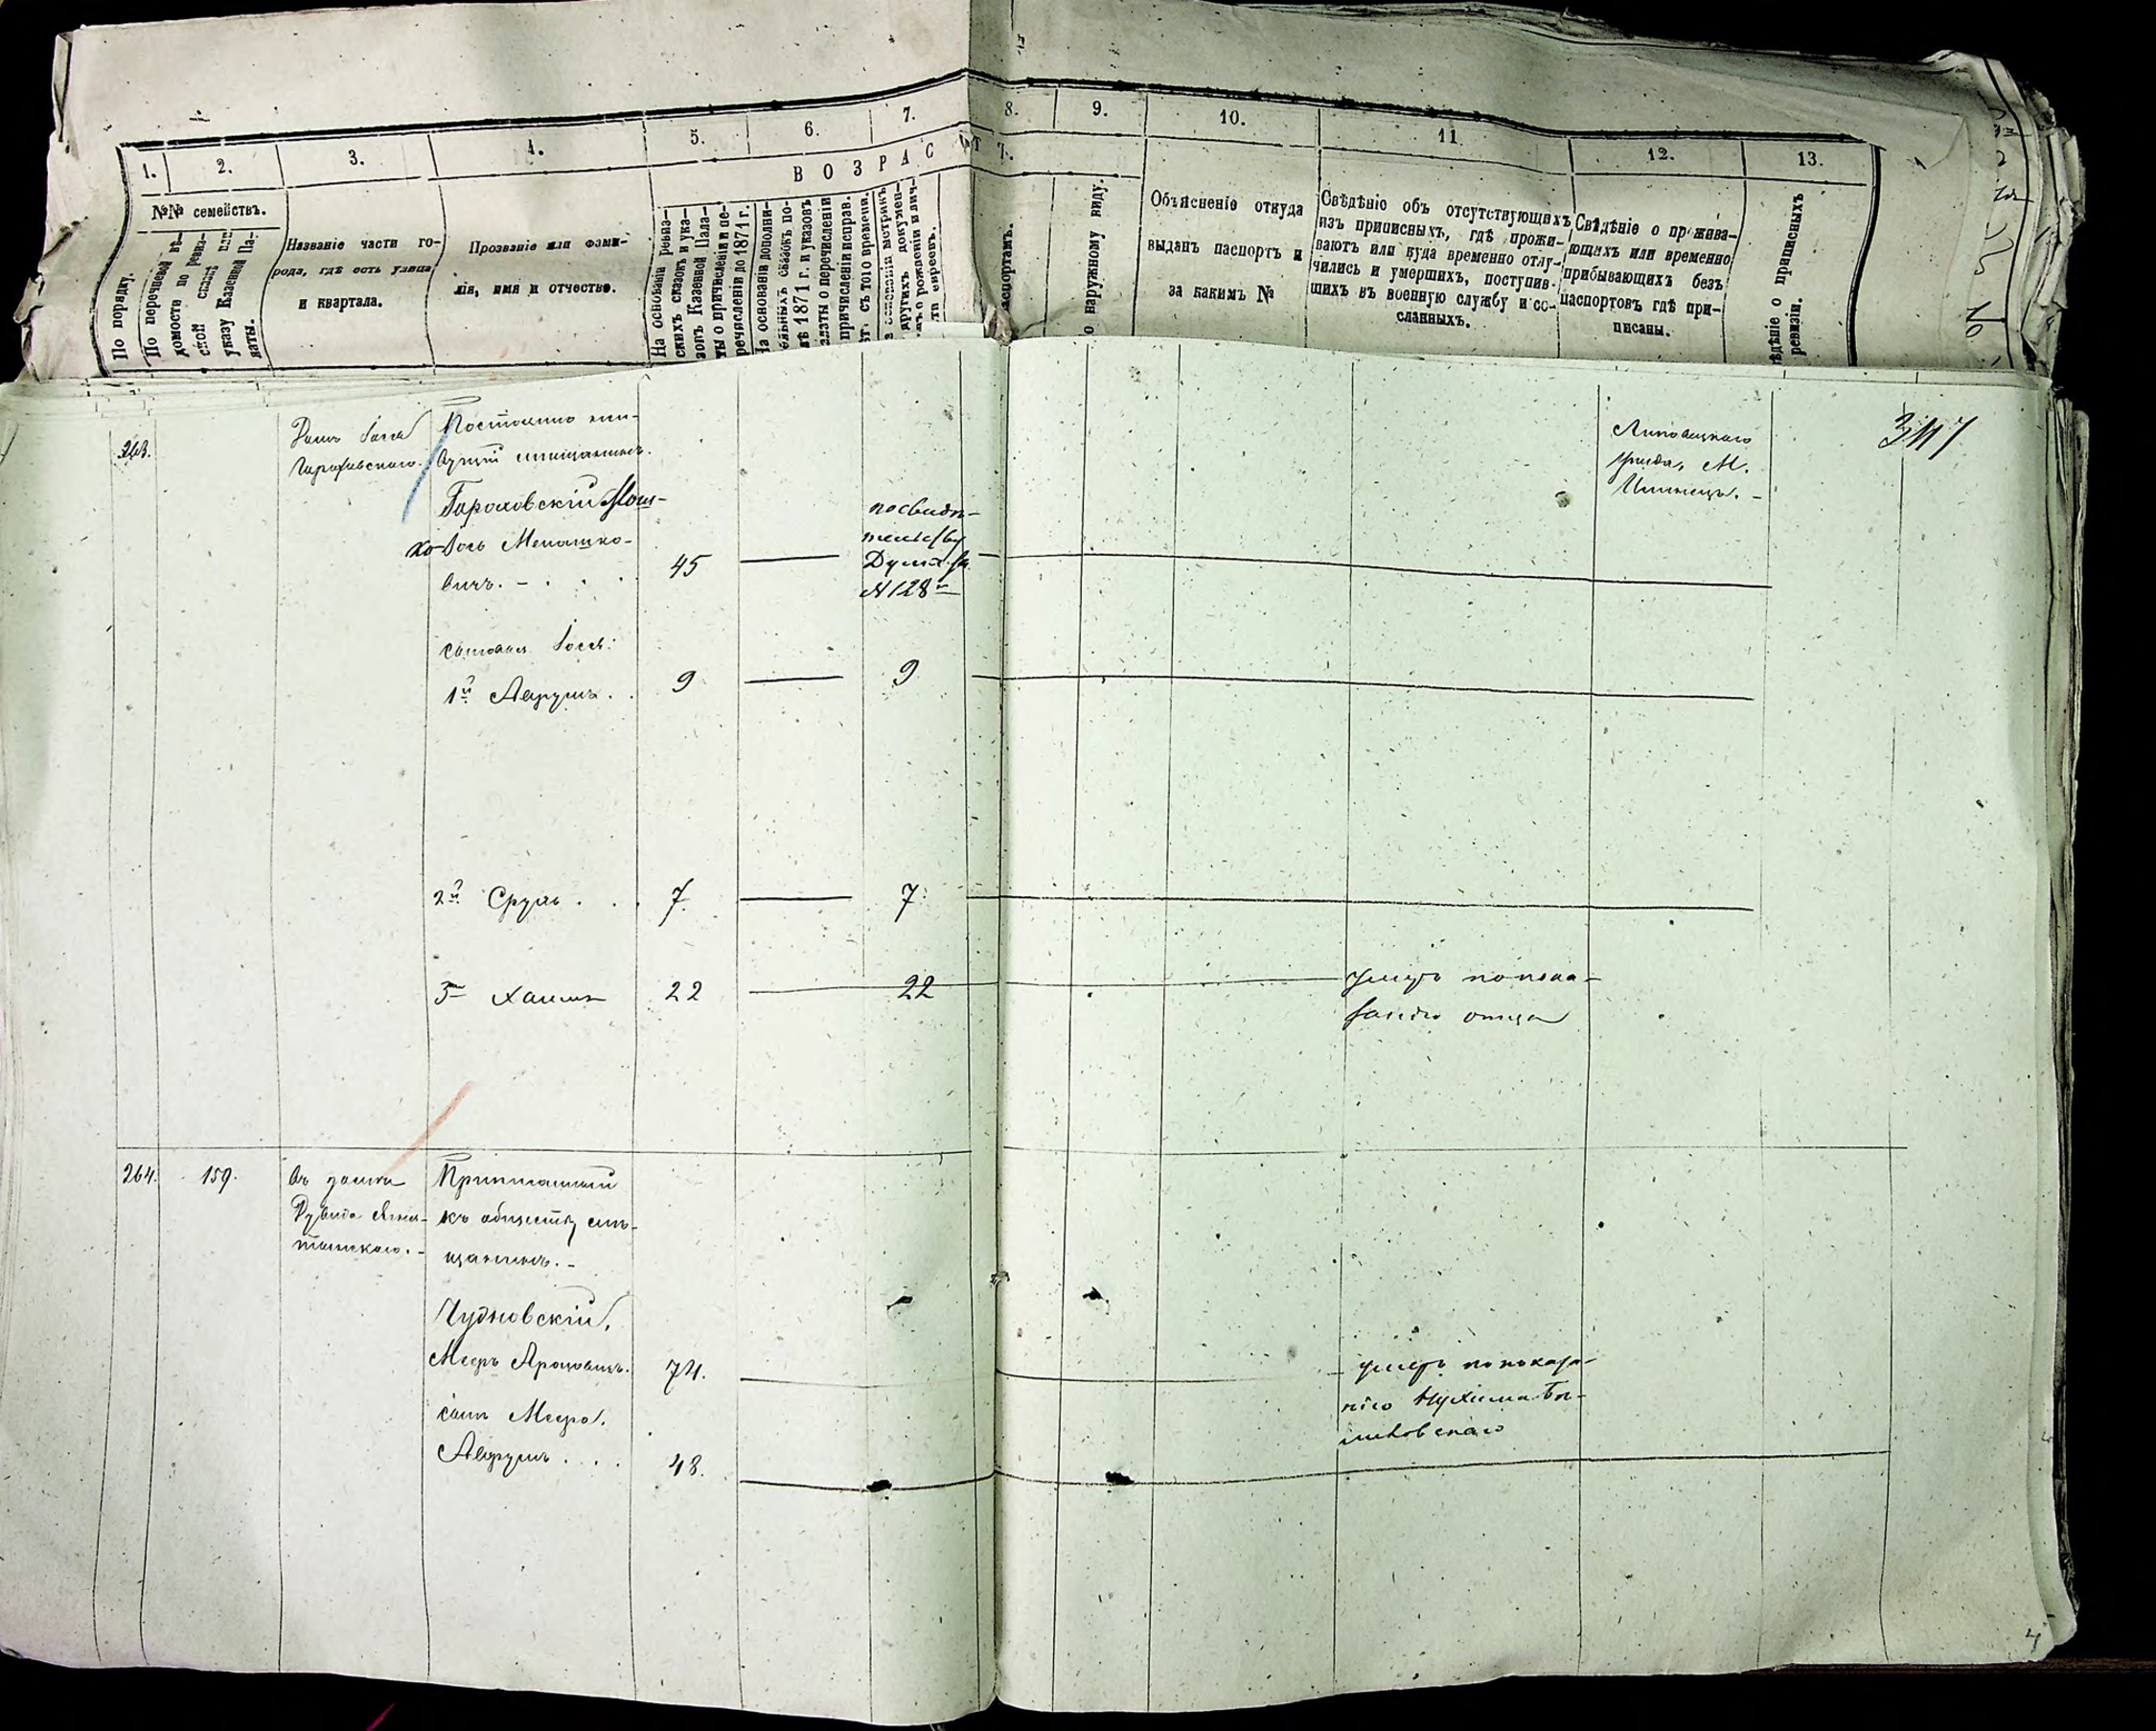 1.
2.
3.
4.
5.
6.
7.
8.
9.
10.
11
12.
13.
ВОЗРАСТЪ.
По порядку.
№№ семействъ.
По перечневой вѣ-
домости по ревиз-
ской сказкѣ или
указу Казенной Па-
латы.
Названіе части го-
рода, гдѣ есть улица
и квартала.
Прозваніе или фами-
лія, имя и отчество.
На основаніи ревиз-
скихъ сказокъ и ука-
зовъ Казенной Пала-
ты о причисленіи и пе-
речисленіи до 1871 г.
На основаніи дополни-
тельныхъ сказокъ по-
слѣ 1871 г. и указовъ
Палаты о перечисленіи
и причисленіи исправ.
лѣт. съ того времени.
На основаніи метрикъ
и другихъ докумен-
товъ о рожденіи и лич-
сти евреевъ.
паспортамъ.
По наружному виду.
Объясненіе откуда
выданъ паспортъ и
за какимъ №
Свѣдѣніе объ отсутствующихъ
изъ приписныхъ, гдѣ прожи-
ваютъ или куда временно отлу-
чились и умершихъ, поступив-
шихъ въ военную службу и со-
сланныхъ.
Свѣдѣніе о прожива-
ющихъ или временно
прибывающихъ безъ
паспортовъ гдѣ при-
писаны.
Свѣдѣніе о приписныхъ
ревизіи.
№
263.
Домъ
Постоянно жи-
вущій мещанинъ.
Гороховскій Мош-
ко Іось Менашко-
вичъ. -
45
по свидѣ-
тельству
Думы за
№ 128
Липовецкаго
уѣзда, М.
Илинецъ. -
347
сыновья Іося:
1й Аврумъ
9
9
2й Сруль
7.
7.
3 Хаимъ
22
22
умеръ по пока-
занію отца
264.
159.
въ домѣ
Дувида
Приписанный
къ обществу мѣ-
щанинъ. -
Чудновскій,
Мееръ Ароновичъ.
74.
умеръ по показа-
нію Нухима
сынъ Меера,
Аврумъ
48.